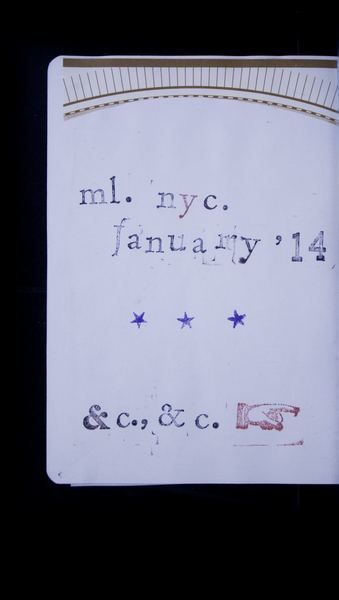 ml. nyc.
January '14
&c., &c.